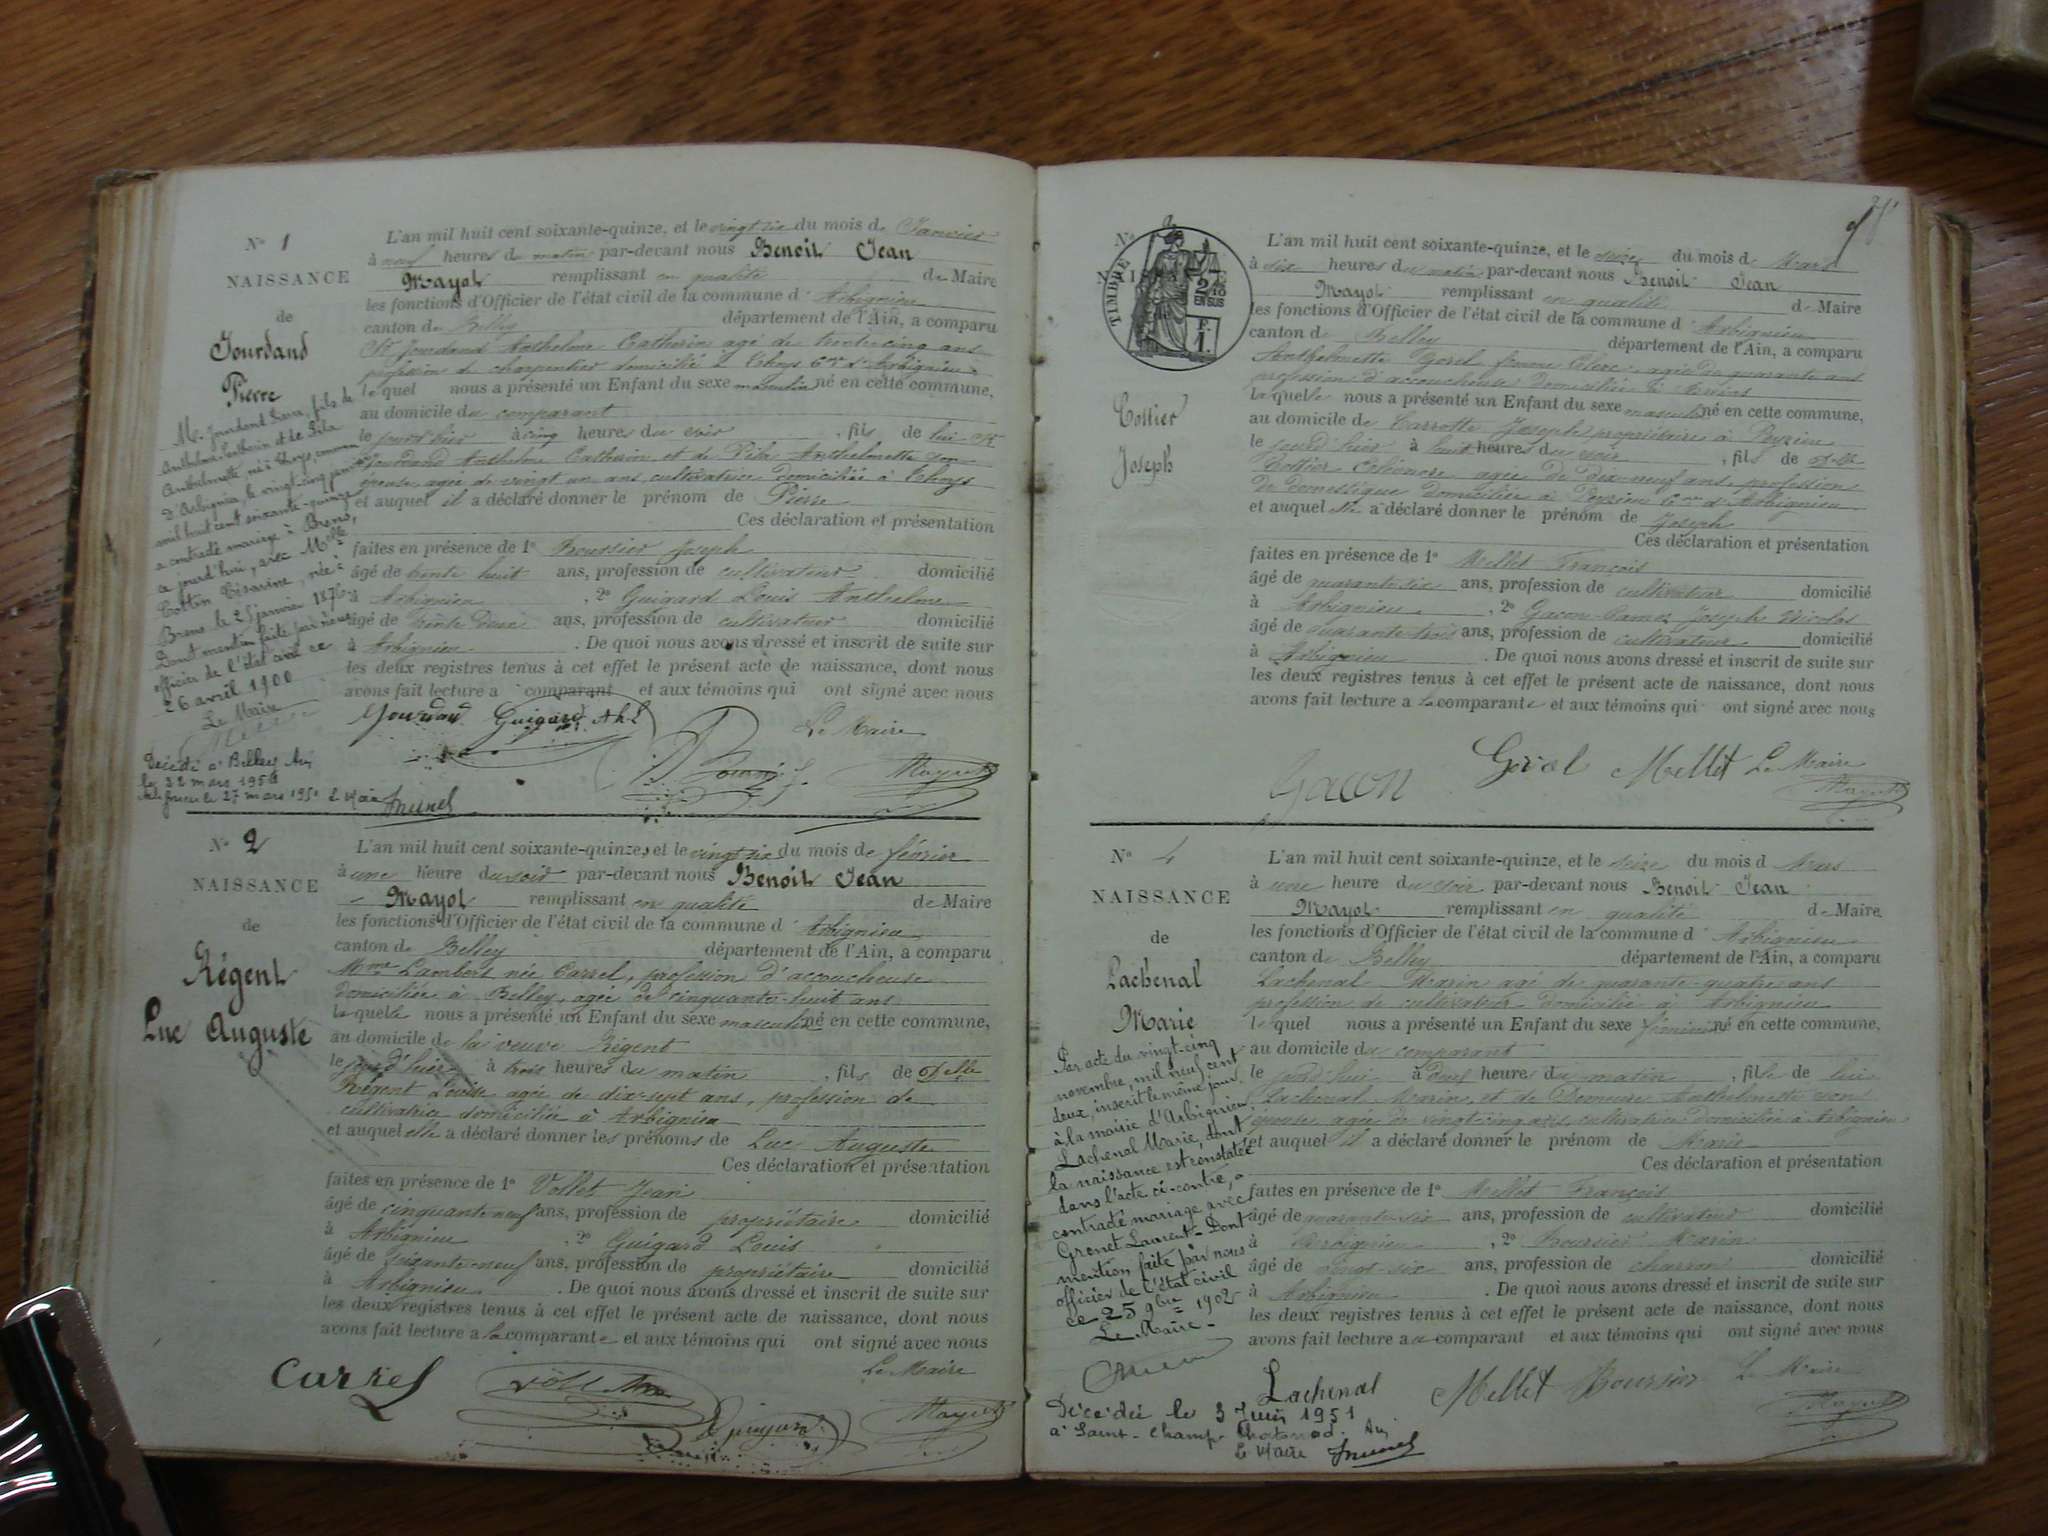 N° 1
NAISSANCE
de
Jourdand
Pierre
M. Jourdand Pierre, fils de
Anthelme Catherin et de Pila
Anthelmette, né à Thoys, commune
d'Arbignieu, le vingt-cinq janvier
mil huit cent soixante-quinze
a contracté mariage à Brens,
ce jourd'hui, avec Melle
Cottin Césarine, née à
Brens le 25 janvier 1876.
Dont mention faite par nous
officier de l'état civil ce
26 avril 1900
Le Maire
Décédé à Belley Ain
le 22 mars 1951
le 27 mars 1951 Le Maire
L'an mil huit cent soixante-quinze, et le vingt six du mois de Janvier
à neuf heures du matin par-devant nous Benoit Jean
Mayot remplissant en qualité de Maire
les fonctions d'Officier de l'état civil de la commune d'Arbignieu
canton de Belley département de l'Ain, a comparu
Sr Jourdand Anthelme Catherin agé de trente cinq ans
profession de charpentier domicilié à Thoys Cne d'Arbignieu
lequel nous a présenté un Enfant du sexe masculin né en cette commune,
au domicile du comparant
le jourd'hier à cinq heures du soir, fils de lui Sr
Jourdand Anthelme Catherin et de Pila Anthelmette son
épouse, agée de vingt un ans cultivatrice domiciliée à Thoys
et auquel il a déclaré donner le prénom de Pierre
Ces déclaration et présentation
faites en présence de 1° Boursier Joseph
âgé de trente huit ans, profession de cultivateur domicilié
à Arbignieu, 2° Guigard Louis Anthelme
âgé de trente deux ans, profession de cultivateur domicilié
à Arbignieu. De quoi nous avons dressé et inscrit de suite sur
les deux registres tenus à cet effet le présent acte de naissance, dont nous
avons fait lecture a comparant et aux témoins qui ont signé avec nous
Jourdand Guigard Ahl Le Maire
Mayot
N° 2
NAISSANCE
de
Régent
Luc Auguste
L'an mil huit cent soixante-quinze, et le vingt six du mois de février
à une heure du soir par-devant nous Benoit Jean
Mayot remplissant en qualité de Maire
les fonctions d'Officier de l'état civil de la commune d'Arbignieu
canton de Belley département de l'Ain, a comparu
Mme Lambert née Carrel, profession d'accoucheuse
domiciliée à Belley, agée de cinquante-huit ans
laquelle nous a présenté un Enfant du sexe masculin né en cette commune,
au domicile de la veuve Régent
le jourd'hier à trois heures du matin, fils de Delle
Régent Louise agée de dix-sept ans, profession de
cultivatrice domiciliée à Arbignieu
et auquel elle a déclaré donner les prénoms de Luc Auguste
Ces déclaration et présentation
faites en présence de 1° Vollet Jean
âgé de cinquante neuf ans, profession de propriétaire domicilié
à Arbignieu, 2° Guigard Louis
âgé de soixante-neuf ans, profession de propriétaire domicilié
à Arbignieu. De quoi nous avons dressé et inscrit de suite sur
les deux registres tenus à cet effet le présent acte de naissance, dont nous
avons fait lecture a la comparante et aux témoins qui ont signé avec nous
Le Maire
Carrel
Mayot
N°
TIMBRE
2/10
EN SUS
F.
1.
Cottier
Joseph
L'an mil huit cent soixante-quinze, et le seize du mois de Mars
à six heures du matin par-devant nous Benoit Jean
Mayot remplissant en qualité de Maire
les fonctions d'Officier de l'état civil de la commune d'Arbignieu
canton de Belley département de l'Ain, a comparu
Anthelmette Gorel femme Clerc agée de quarante ans
profession d'accoucheuse domiciliée à
laquelle nous a présenté un Enfant du sexe masculin né en cette commune,
au domicile de Carrotte Joseph propriétaire à Peyzieu
le jourd'hier à huit heures du soir, fils de Delle
Cottier Eléonore agée de dix-neuf ans profession
de domestique domiciliée à Peyzieu Cne d'Arbignieu
et auquel elle a déclaré donner le prénom de Joseph
Ces déclaration et présentation
faites en présence de 1° Mellet François
âgé de quarante six ans, profession de cultivateur domicilié
à Arbignieu, 2° Gacon-Camoz Joseph Nicolas
âgé de quarante trois ans, profession de cultivateur domicilié
à Arbignieu. De quoi nous avons dressé et inscrit de suite sur
les deux registres tenus à cet effet le présent acte de naissance, dont nous
avons fait lecture a la comparante et aux témoins qui ont signé avec nous
Gacon Gorel Mellet Le Maire
Mayot
N° 4
NAISSANCE
de
Lachenal
Marie
Par acte du vingt-cinq
novembre, mil neuf cent
deux, inscrit le même jour
à la mairie d'Arbignieu,
Lachenal Marie, dont
la naissance est constatée
dans l'acte ci-contre, a
contracté mariage avec
Grenet Laurent. Dont
mention faite par nous
officier de l'état civil
ce 25 9bre 1902
Le Maire
Décédée le 3 Juin 1951
à Saint-Champ Chatonod. Ain
Le Maire
L'an mil huit cent soixante-quinze, et le seize du mois d Mars
à une heure du soir par-devant nous Benoit Jean
Mayot remplissant en qualité de Maire
les fonctions d'Officier de l'état civil de la commune d'Arbignieu
canton de Belley département de l'Ain, a comparu
Lachenal Marin agé de quarante-quatre ans
profession de cultivateur domicilié à Arbignieu
lequel nous a présenté un Enfant du sexe féminin né en cette commune,
au domicile du comparant
le jourd'hui à deux heures du matin, fille de lui
Lachenal Marin, et de Demeure Anthelmette son
épouse, agée de vingt-cinq ans, cultivatrice domiciliée à Arbignieu
et auquel il a déclaré donner le prénom de Marie
Ces déclaration et présentation
faites en présence de 1° Mellet François
âgé de quarante six ans, profession de cultivateur domicilié
à Arbignieu, 2° Boursier Marin
âgé de vingt-six ans, profession de charron domicilié
à Arbignieu. De quoi nous avons dressé et inscrit de suite sur
les deux registres tenus à cet effet le présent acte de naissance, dont nous
avons fait lecture au comparant et aux témoins qui ont signé avec nous
Lachenal Mellet Boursier Le Maire
Mayot